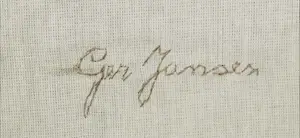 Ger Jansen